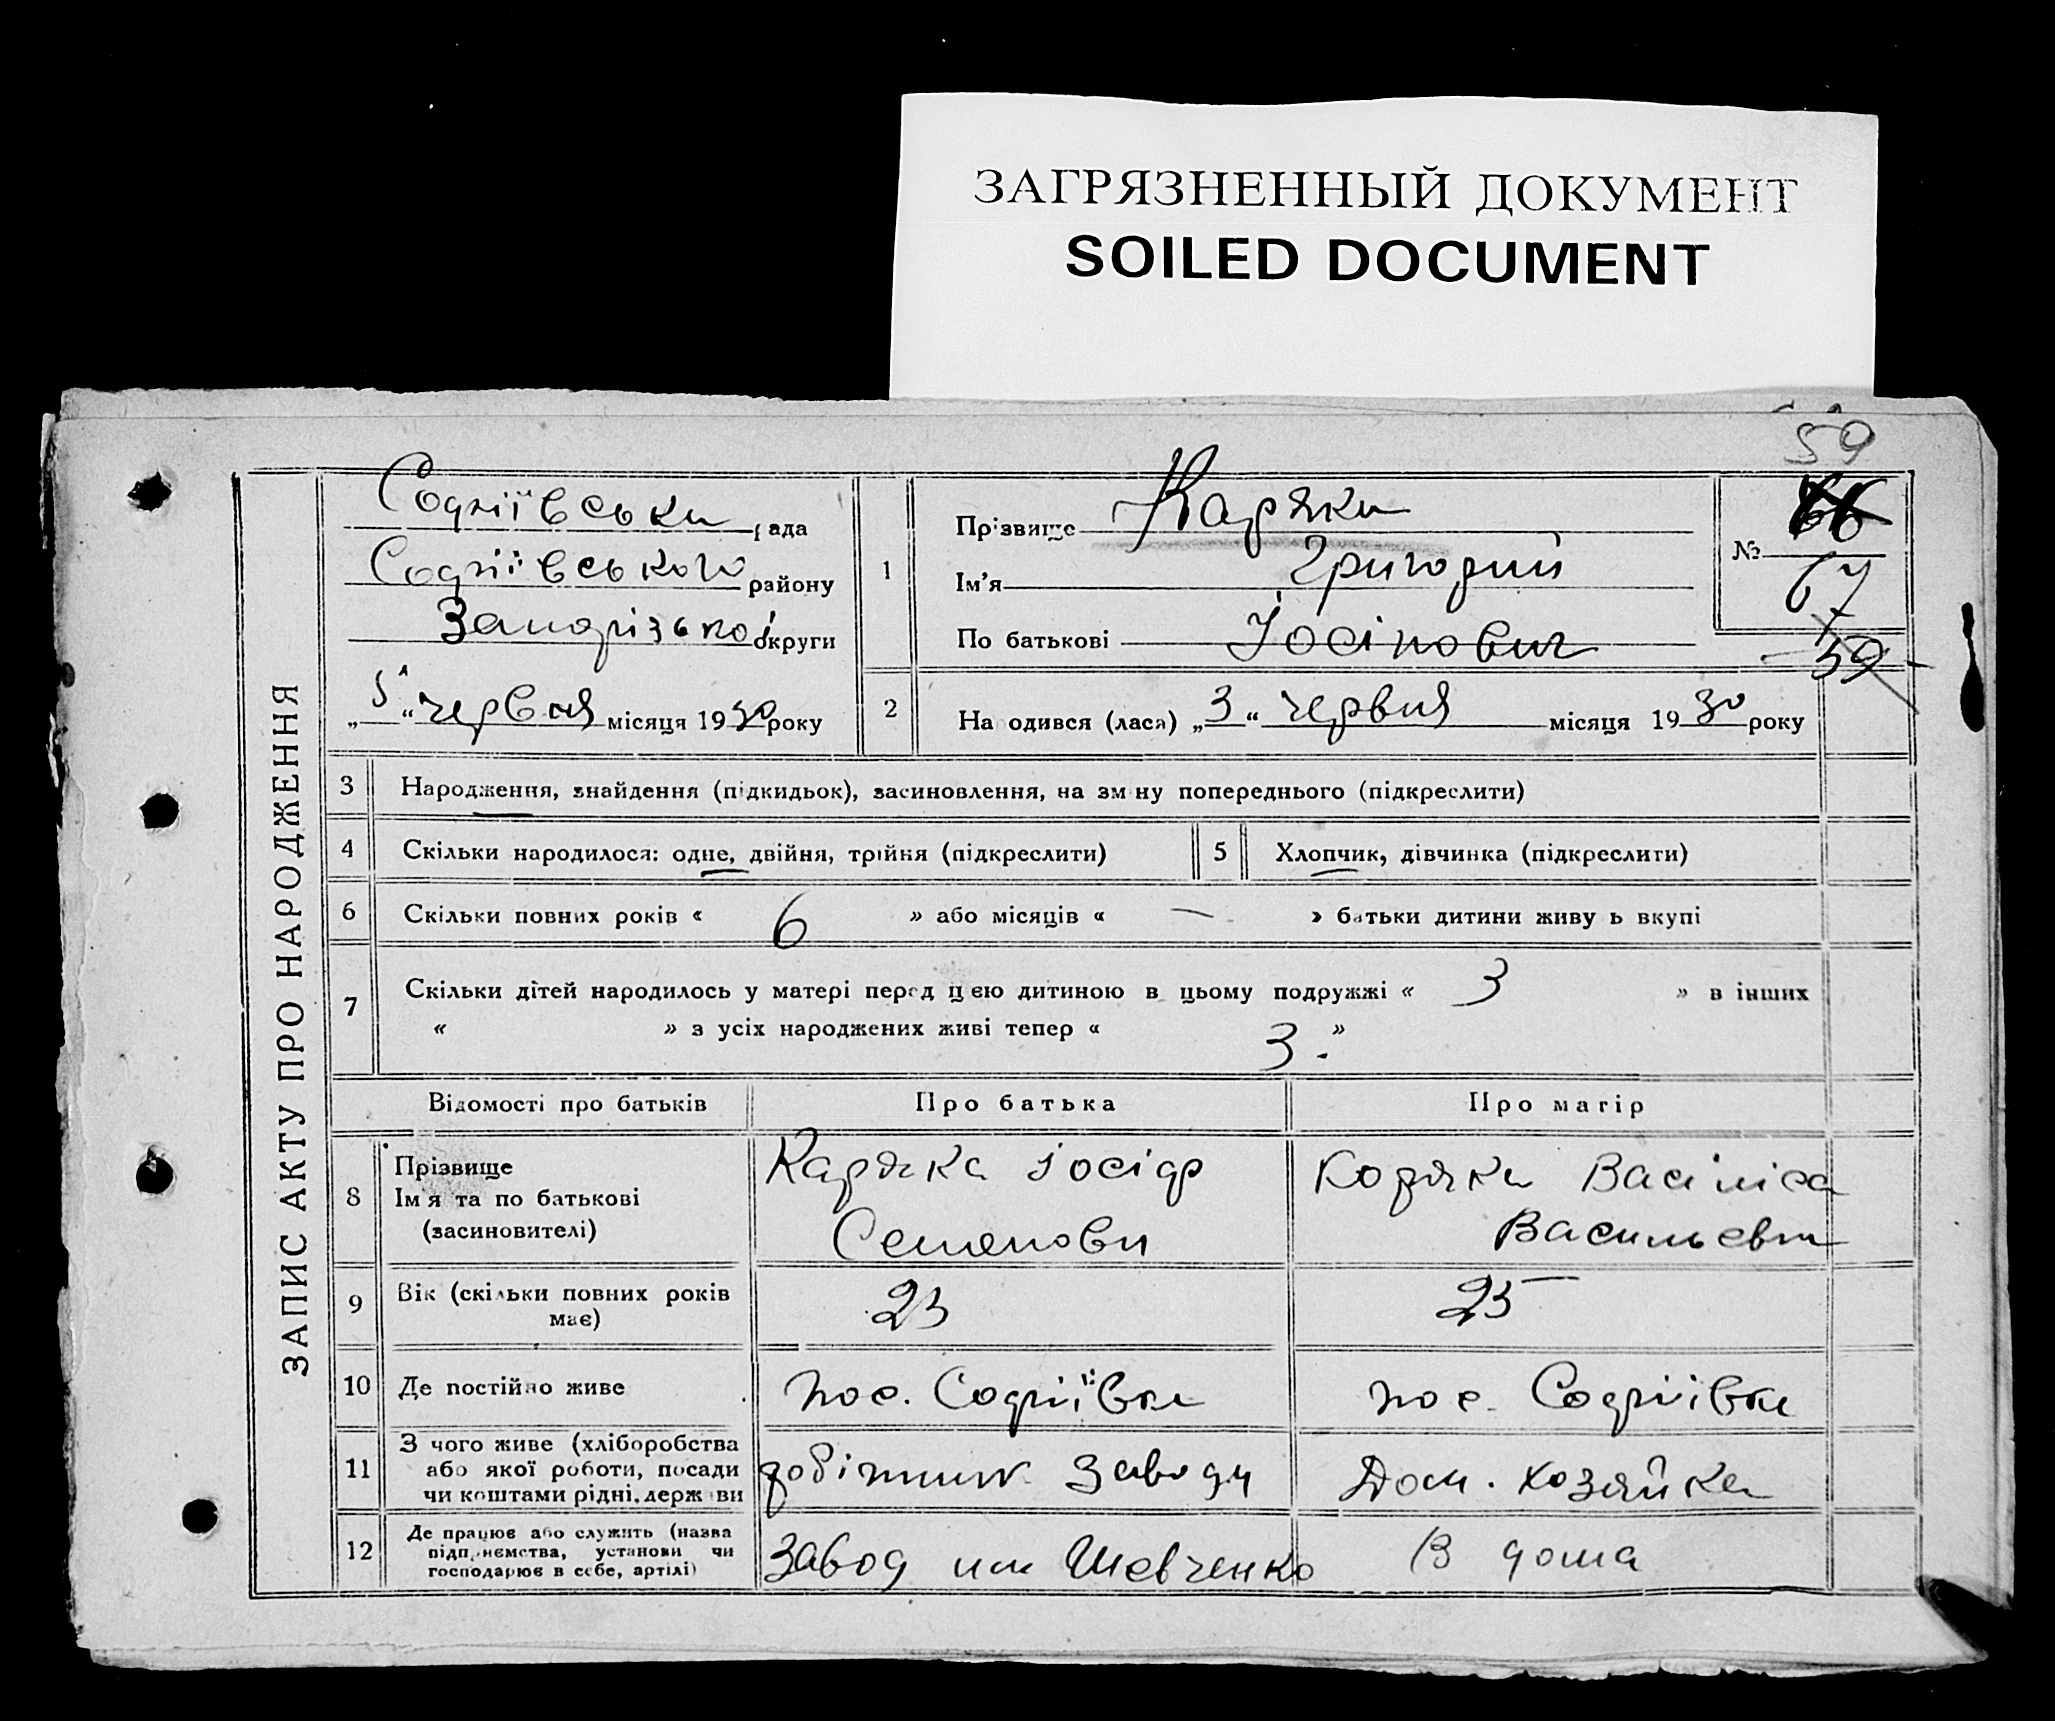 ЗАГРЯЗНЕННЫЙ ДОКУМЕНТ
SOILED DOCUMENT
59
ЗАПИС АКТУ ПРО НАРОДЖЕННЯ
Софіївська рада
Софіївського району
Запорізької округи
„5“ червня місяця 1930 року
1
Прізвище Каряка
Ім’я Григорий
По батькові Іосіпович
№ 66
67
59
2
Народився (лася) „3“ червня місяця 1930 року
3 Народження, знайдення (підкидьок), засиновлення, на зміну попереднього (підкреслити)
4 Скільки народилося: одне, двійня, трійня (підкреслити)
5 Хлопчик, дівчинка (підкреслити)
6 Скільки повних років « 6 » або місяців « — » батьки дитини живуть вкупі
7 Скільки дітей народилось у матері перед цією дитиною в цьому подружжі « 3 » в інших
« » з усіх народжених живі тепер « 3 »
Відомості про батьків Про батька Про матір
8 Прізвище
Ім’я та по батькові
(засиновителі)
Каряка Іосіф
Семенови
Коряка Васіліса
Васильевна
9 Вік (скільки повних років
має)
23
25
10 Де постійно живе
пос. Софіївка
пос. Софіївка
11 З чого живе (хліборобства
або якої роботи, посади
чи коштами рідні, держави
робітник завода
Дом. хозяйка
12 Де працює або служить (назва
підприємства, установи чи
господарює в себе, артілі)
Завод им Шевченко
В дома